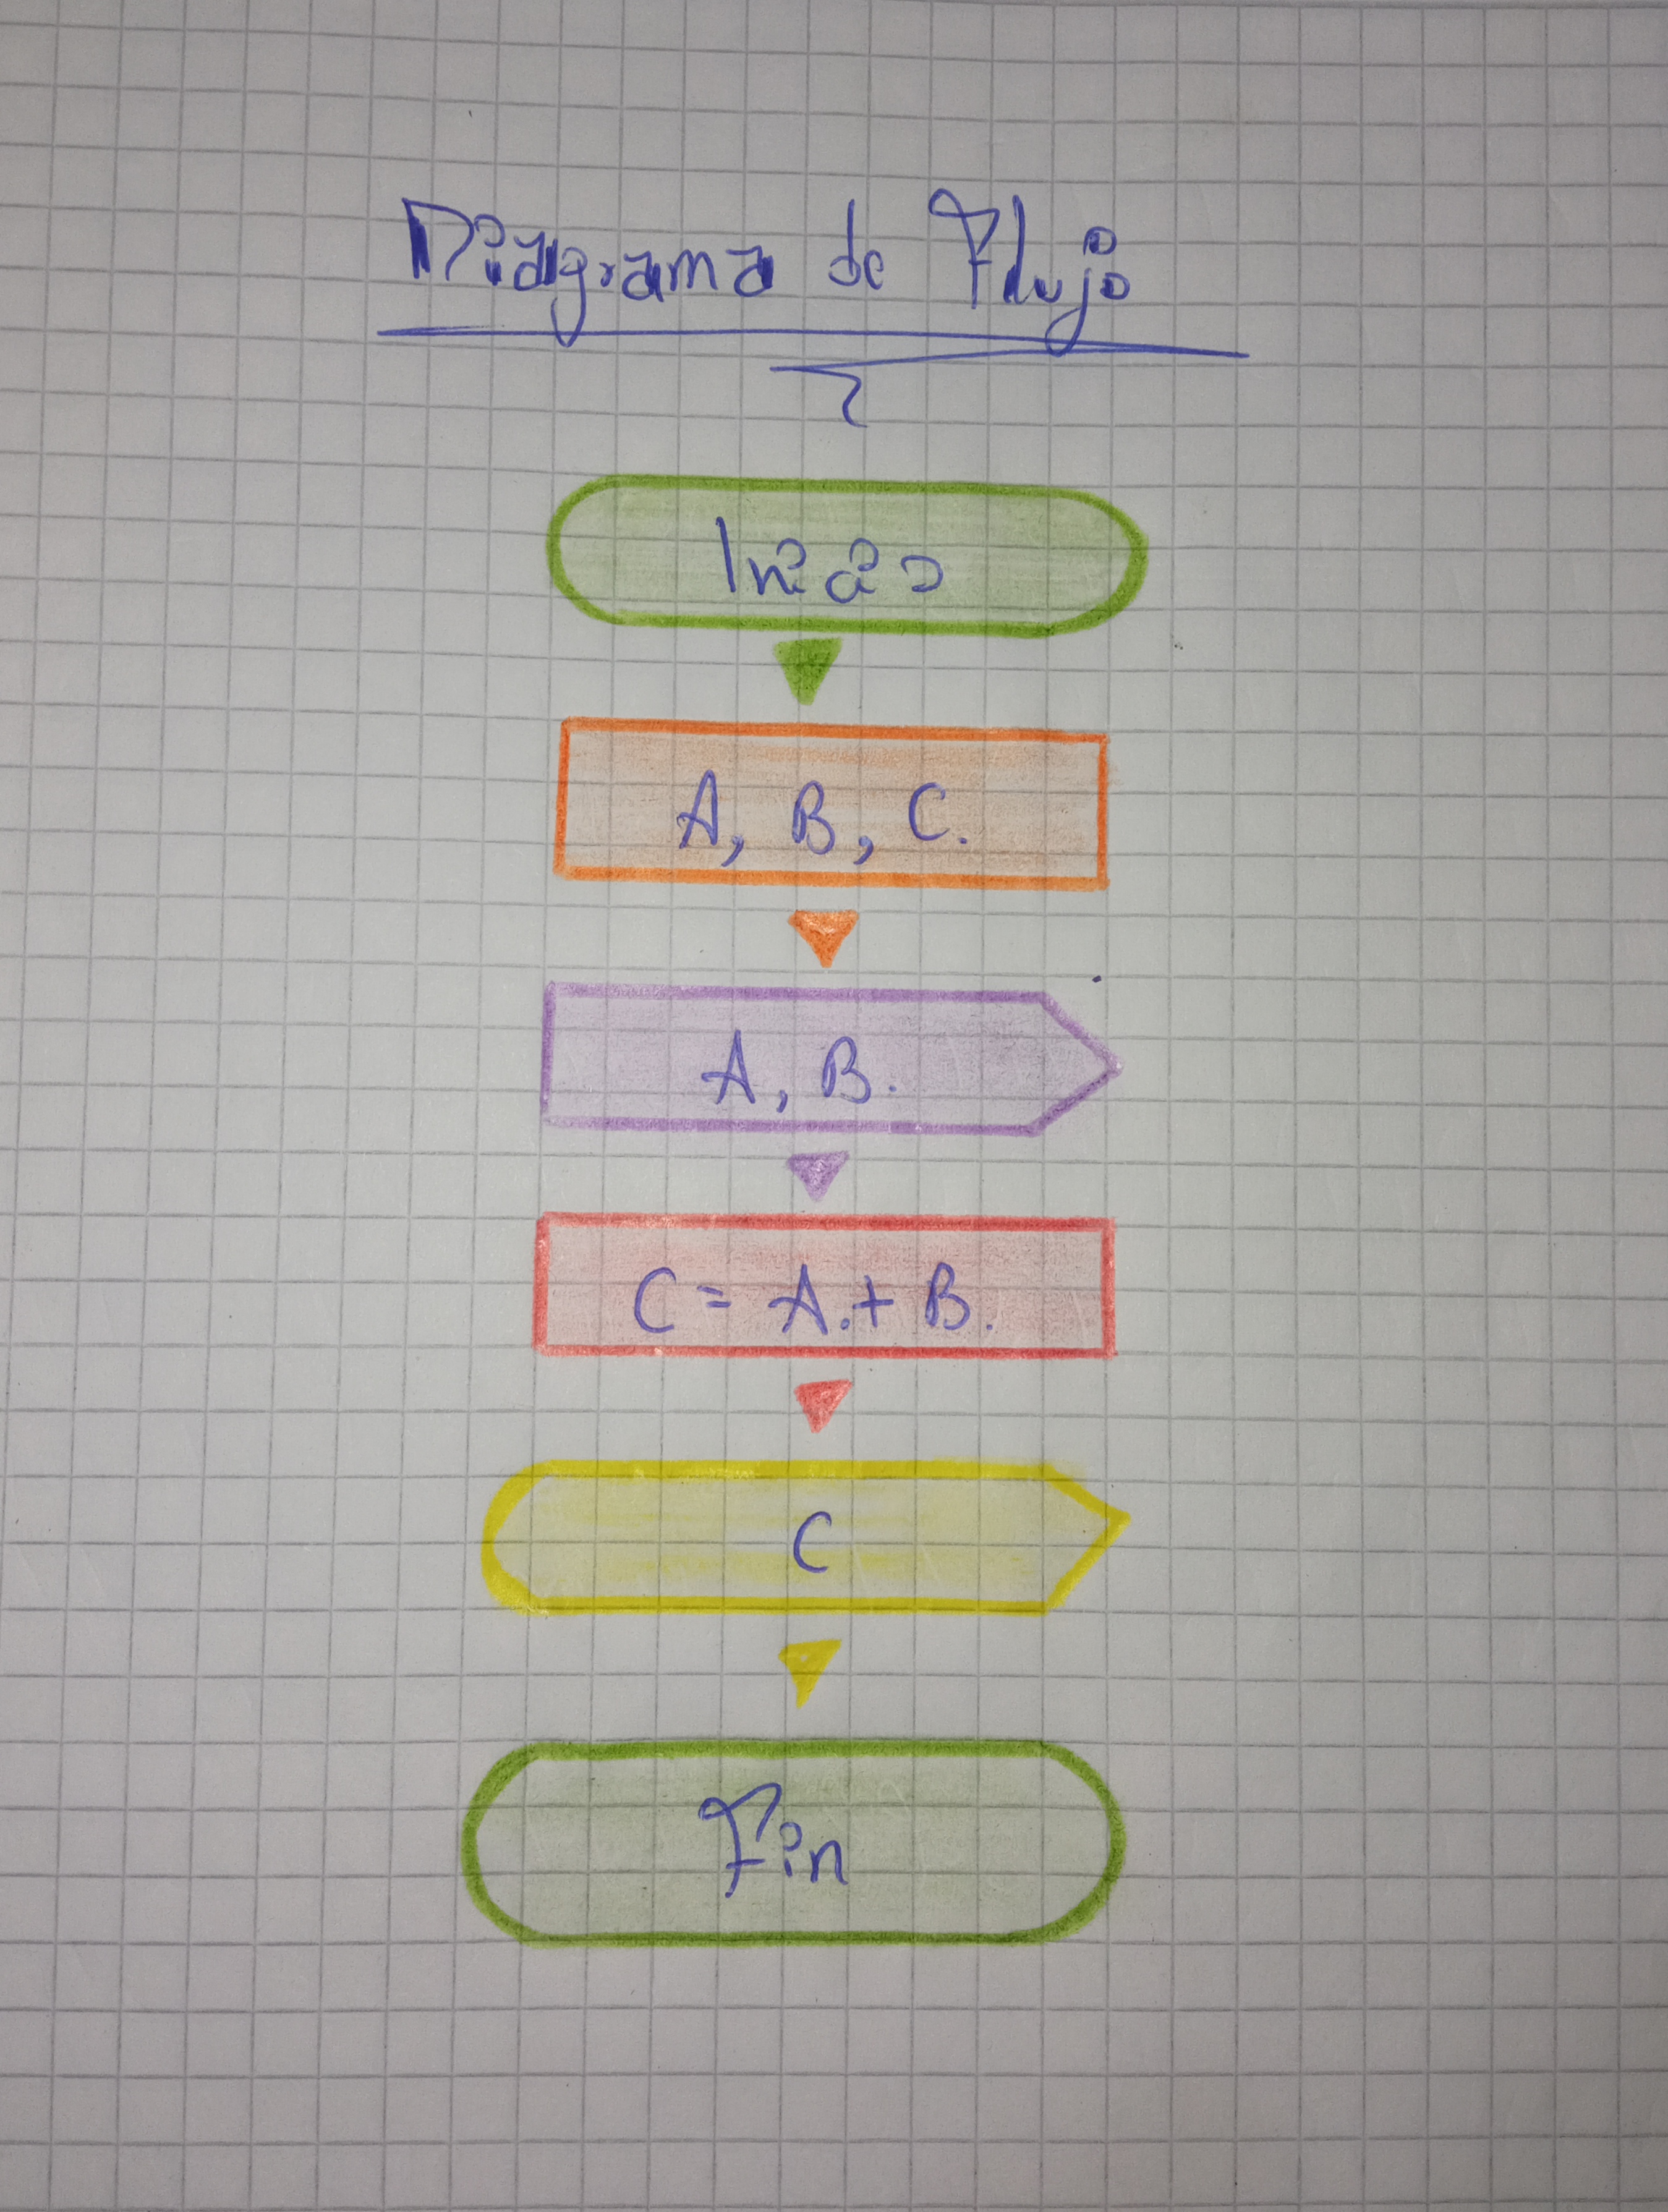 Diagrama de Flujo
Inicio
A, B, C.
A, B.
C = A.+ B.
C
Fin